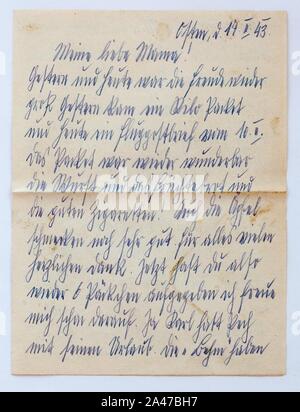 Osten, d. 17 II 43.
Meine liebe Mama!
Gestern und heute war die Freude wieder
groß. Gestern kam ein Kilo Packet
und heute ein Fluggpostbrief vom 10. II.
Das Packet war wieder wunderbar
die Wurst und das und
die guten Zigaretten. die Äpfel
schmecken noch sehr gut. Für alles vielen
herzlichen Dank. Jetzt hast Du also
wieder 6 Päckchen aufgegeben ich freue
mich schon darauf. Ja Karl hatt Pech
mit seinen Urlaub. die haben
alamy
Image ID: 2A47BH7
www.alamy.com